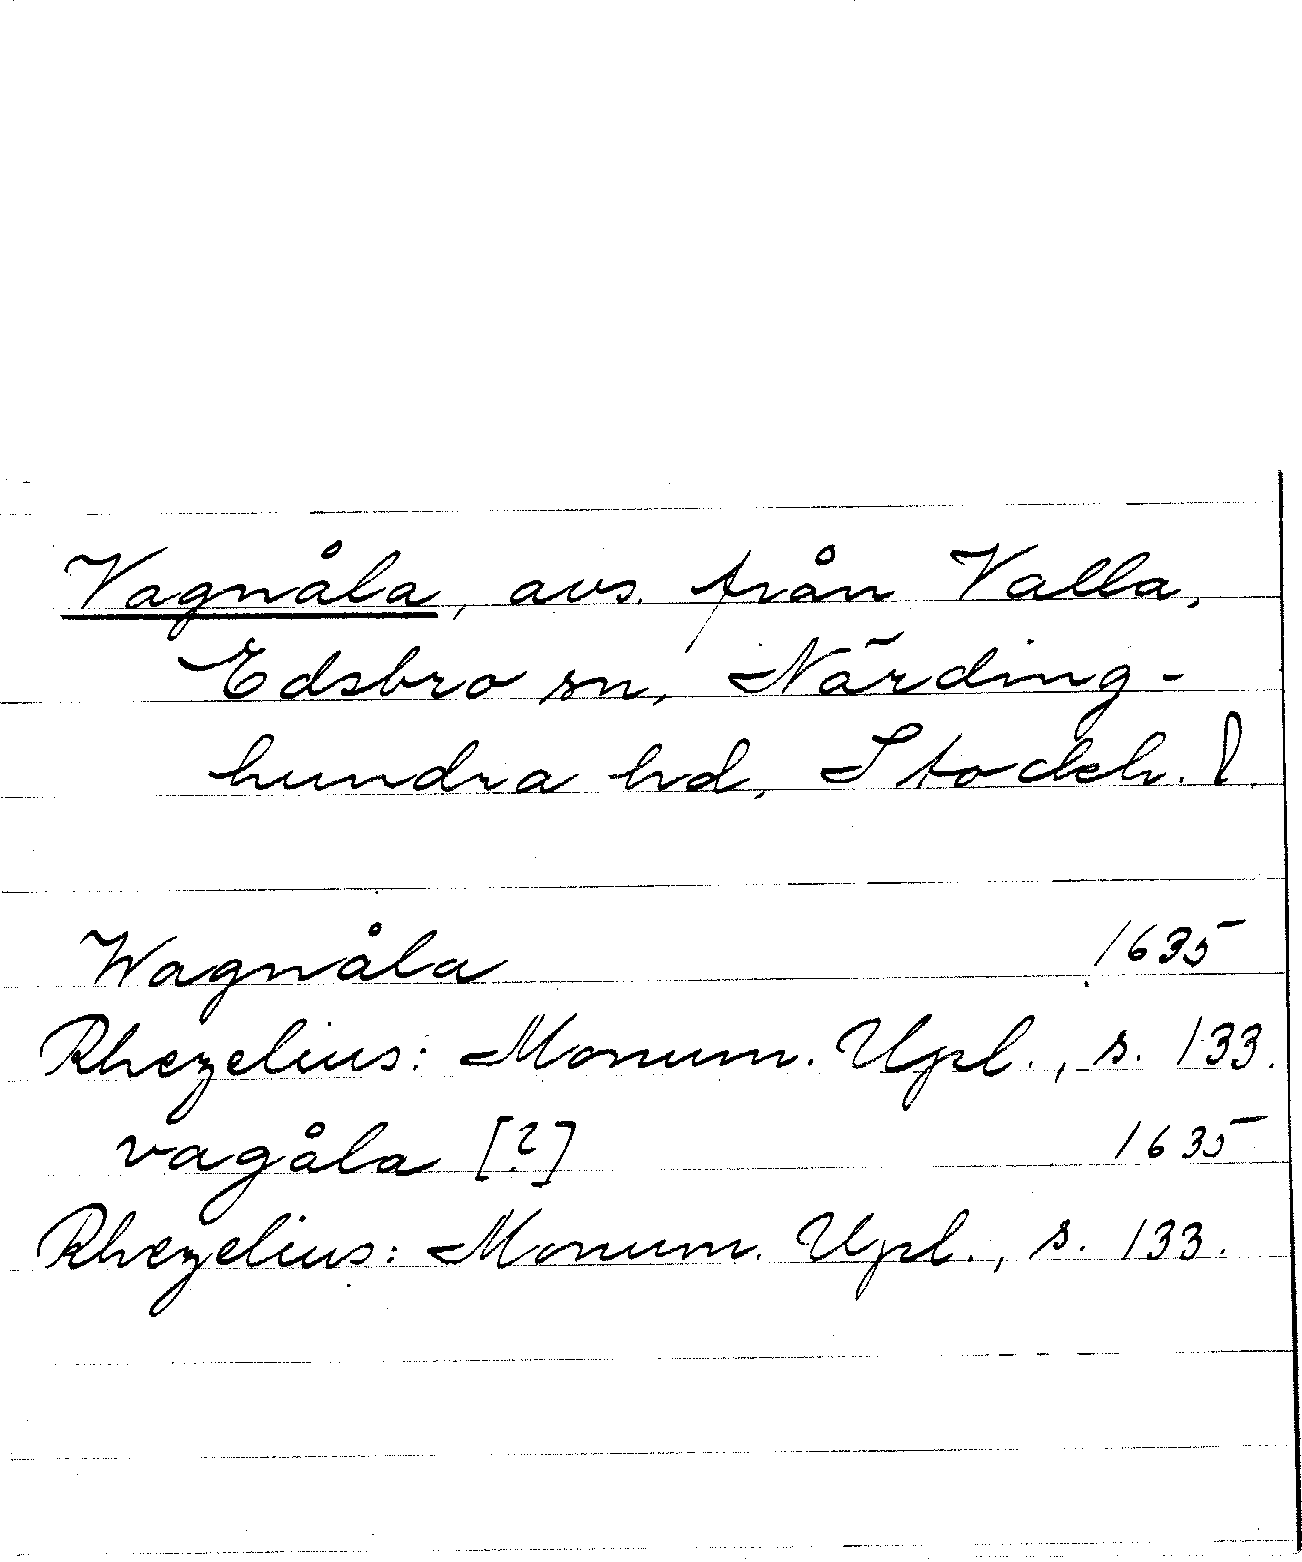 Vagnåla, avs. från Valla,
Edsbro sn, Närding-
hundra hd, Stockh. l.
Wagnåla 1635
Rhezelius: Monum. Upl., s. 133.
vagåla [?] 1635
Rhezelius: Monum. Upl., s. 133.